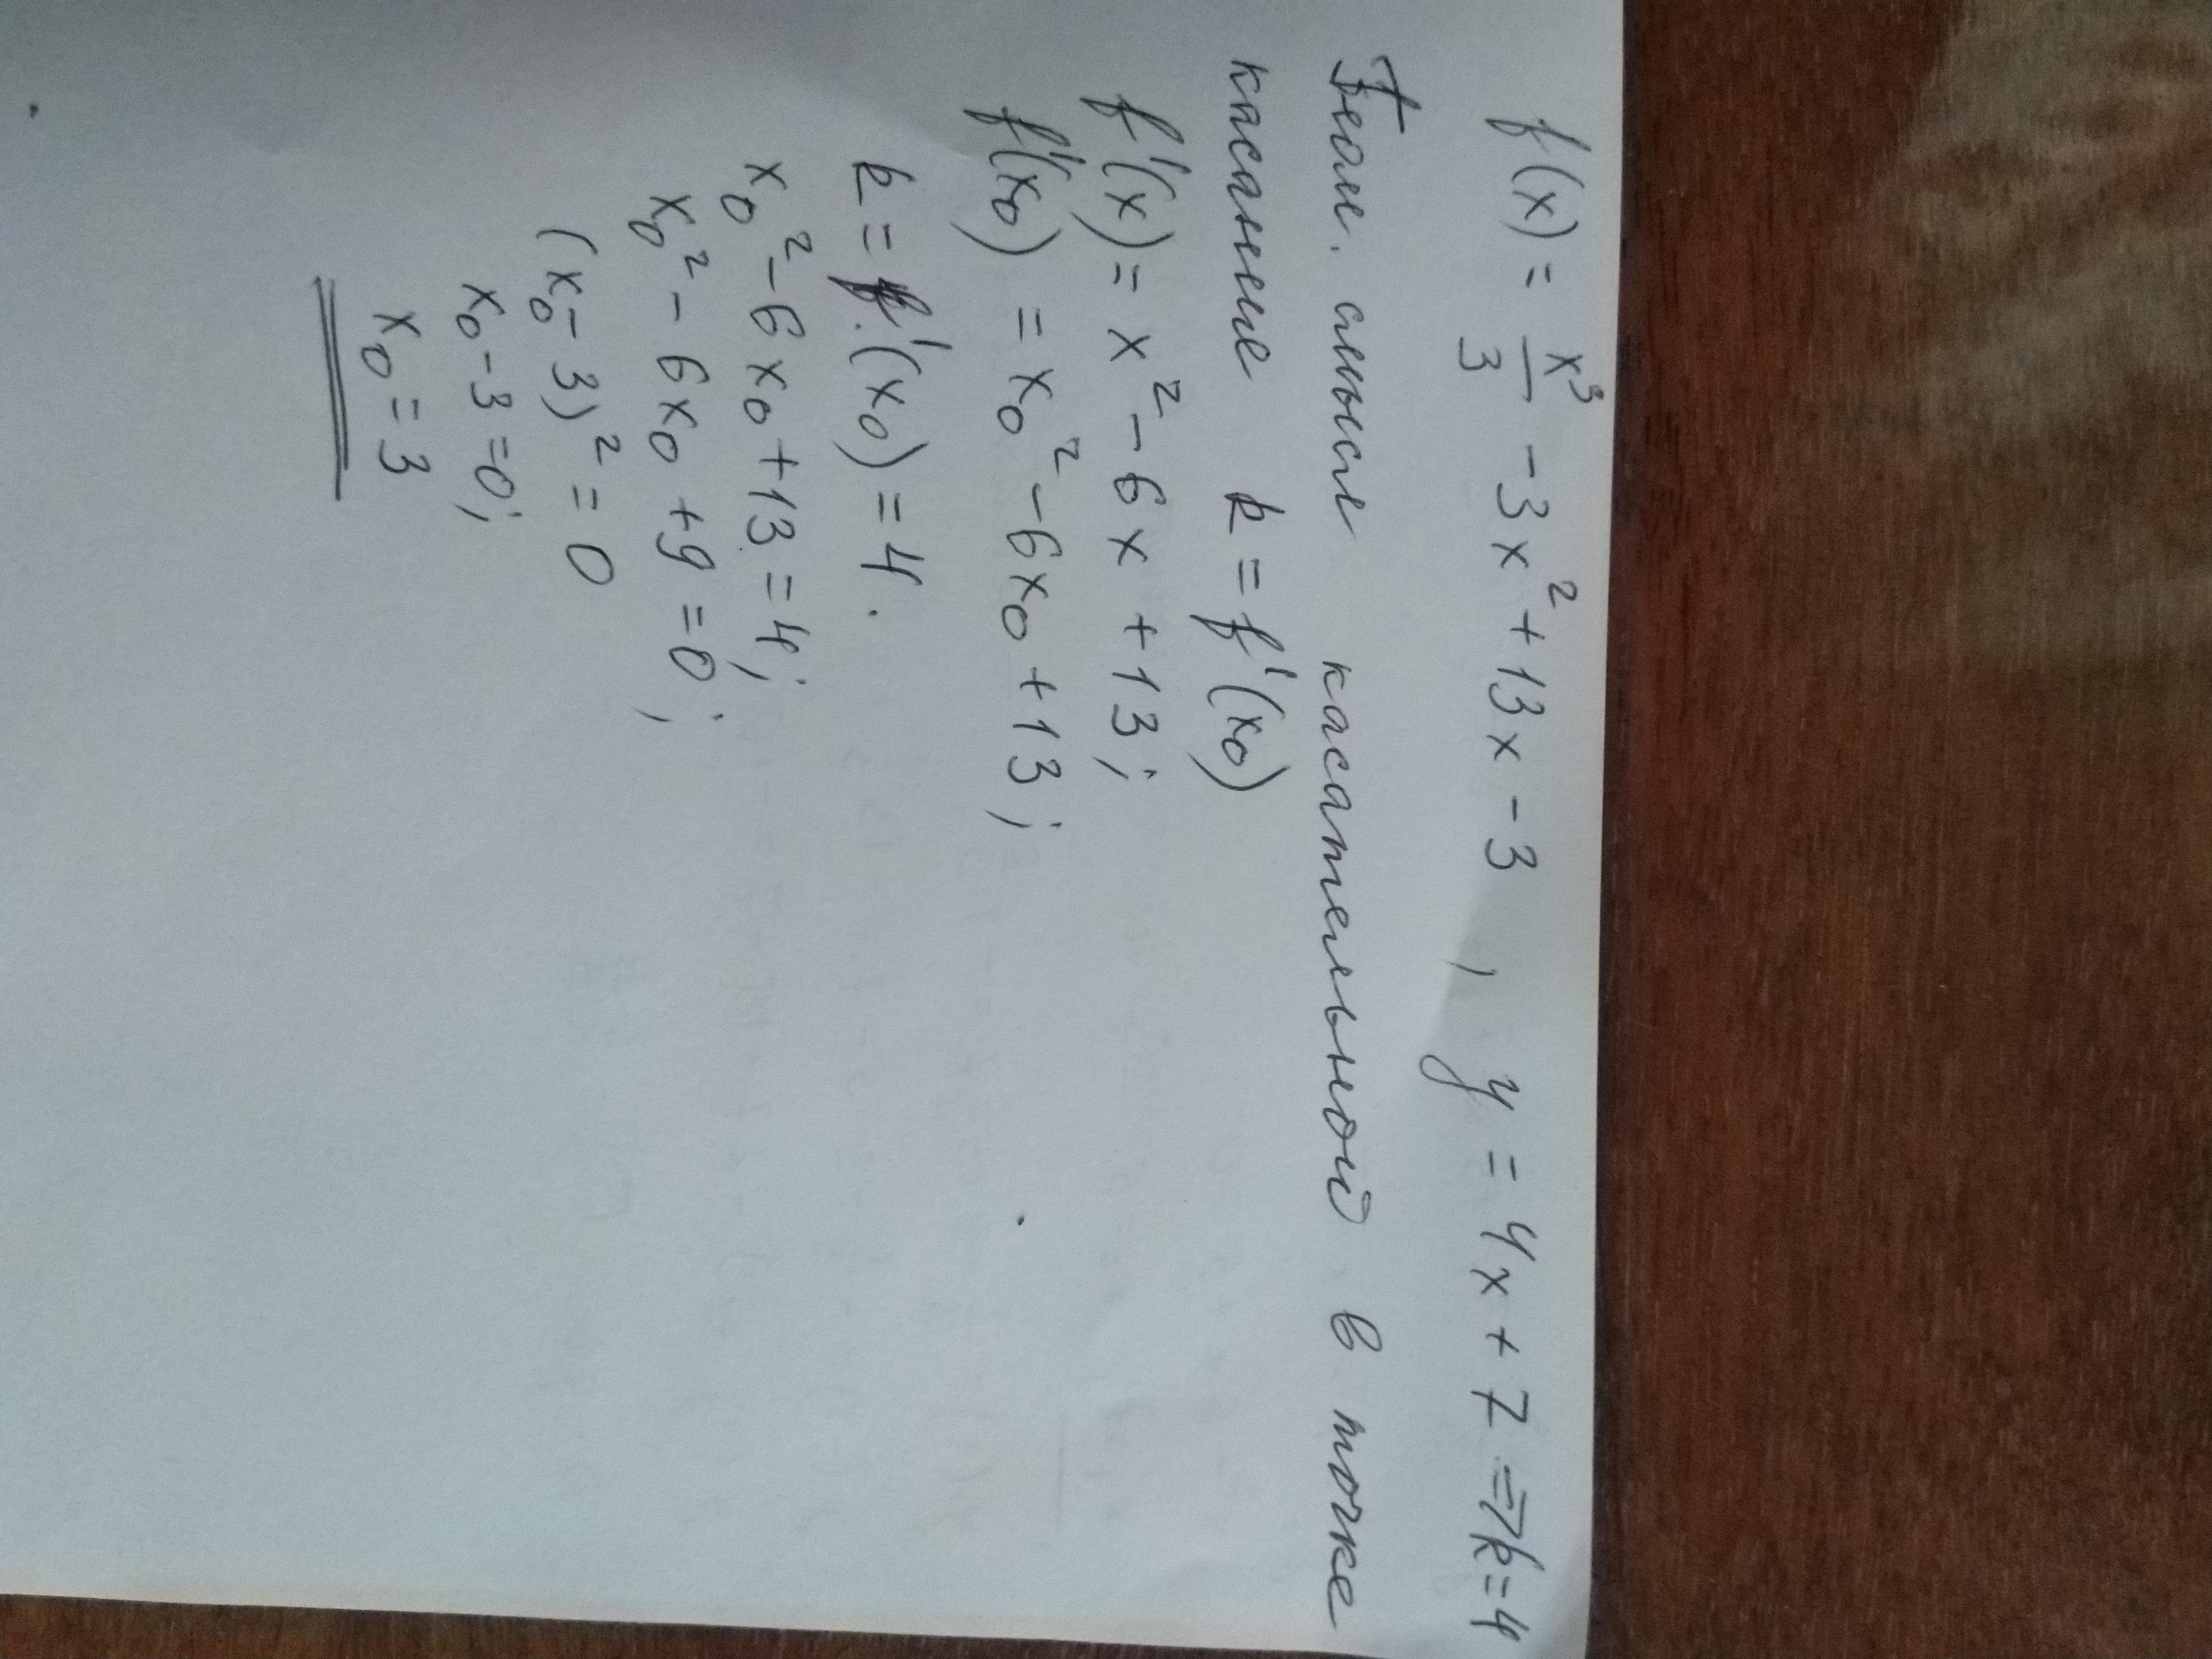 f(x) = x³/3 - 3x² + 13x - 3, y = 4x + 7 => k = 4
Геом. смысл касательной в точке
касание k = f'(x₀)
f'(x) = x² - 6x + 13;
f'(x₀) = x₀² - 6x₀ + 13;
k = f'(x₀) = 4.
x₀² - 6x₀ + 13 = 4;
x₀² - 6x₀ + 9 = 0;
(x₀ - 3)² = 0
x₀ - 3 = 0;
x₀ = 3